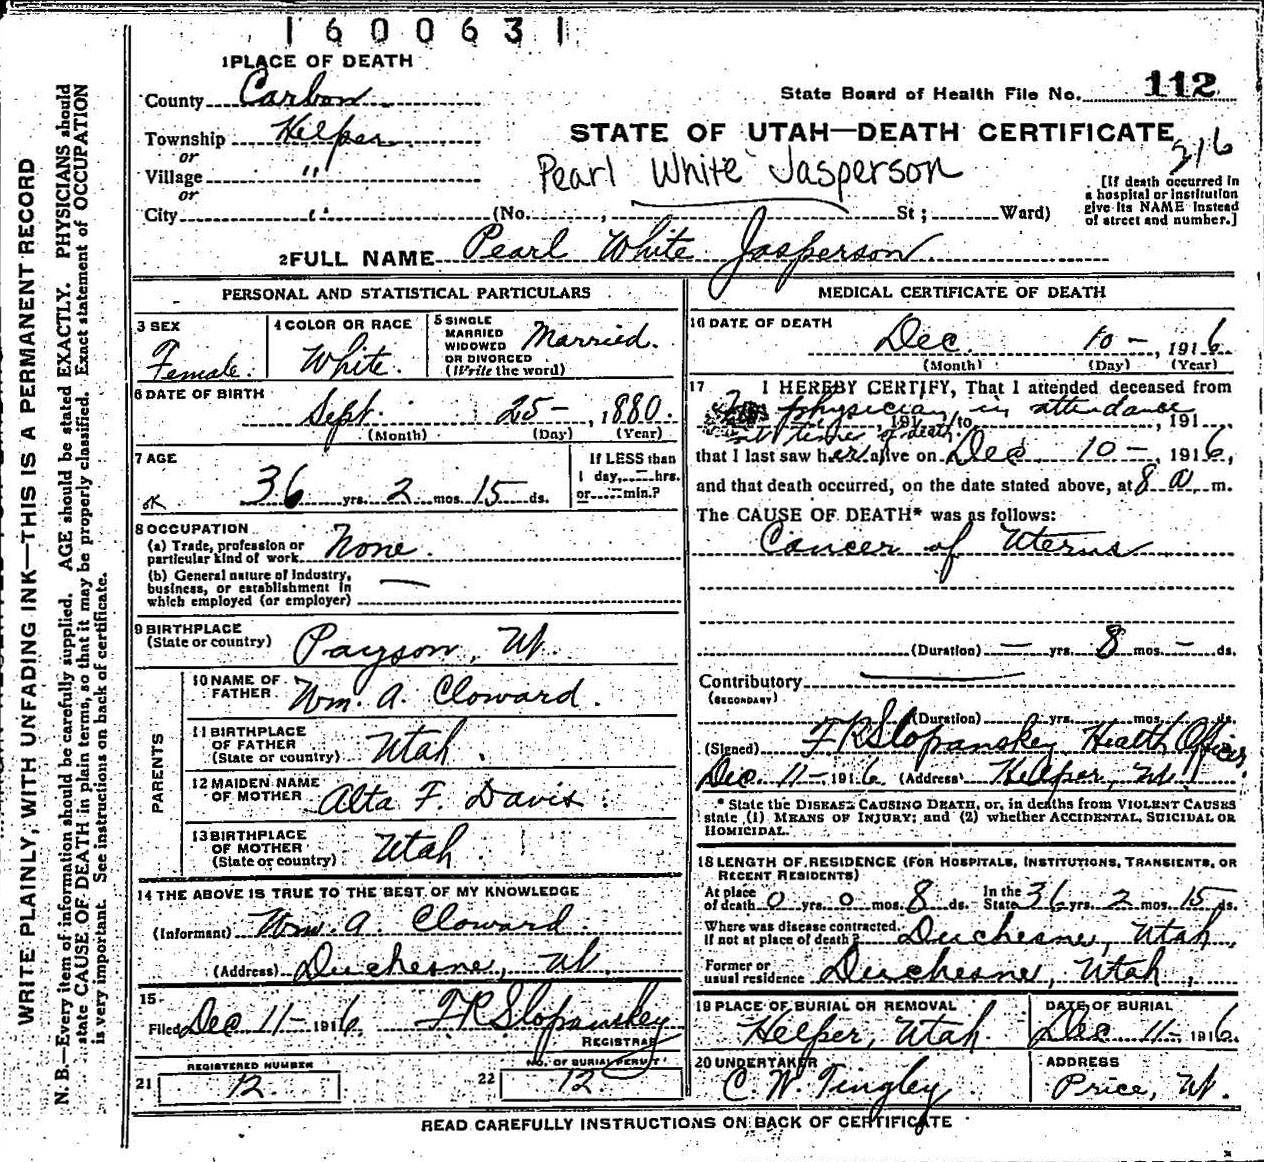 1600631
1 PLACE OF DEATH
County Carbon
State Board of Health File No. 112
Township Helper
STATE OF UTAH—DEATH CERTIFICATE
216
or
Village "
Pearl White Jasperson
or
City " (No. , St ; Ward)
[If death occurred in
a hospital or institution
give its NAME instead
of street and number.]
2 FULL NAME Pearl White Jasperson
PERSONAL AND STATISTICAL PARTICULARS
3 SEX
Female.
4 COLOR OR RACE
White.
5 SINGLE
MARRIED
WIDOWED
OR DIVORCED
(Write the word)
Married.
6 DATE OF BIRTH
Sept. 25—, 1880.
(Month) (Day) (Year)
7 AGE
36 yrs. 2 mos. 15 ds.
If LESS than
1 day, — hrs.
or — min.?
8 OCCUPATION
(a) Trade, profession or
particular kind of work None.
(b) General nature of Industry,
business, or establishment in
which employed (or employer) —
9 BIRTHPLACE
(State or country) Payson, Ut.
PARENTS
10 NAME OF
FATHER Wm. A. Cloward.
11 BIRTHPLACE
OF FATHER
(State or country) Utah.
12 MAIDEN NAME
OF MOTHER Alta F. Davis.
13 BIRTHPLACE
OF MOTHER
(State or country) Utah.
14 THE ABOVE IS TRUE TO THE BEST OF MY KNOWLEDGE
(Informant) Wm. A. Cloward.
(Address) Duchesne, Ut.
15
Filed Dec 11— 1916, F R Slopanskey
REGISTRAR
REGISTERED NUMBER
21 12.
NO. OF BURIAL PERMIT
22 12
MEDICAL CERTIFICATE OF DEATH
16 DATE OF DEATH
Dec. 10—, 1916.
(Month) (Day) (Year)
17 I HEREBY CERTIFY, That I attended deceased from
physician in attendance
, 191 , to , 191
at time of death
that I last saw her alive on Dec. 10—, 1916,
and that death occurred, on the date stated above, at 8 a m.
The CAUSE OF DEATH* was as follows:
Cancer of Uterus
(Duration) — yrs. 8 mos. — ds.
Contributory
(SECONDARY)
(Duration) yrs. mos. ds.
(Signed) F R Slopanskey Health Officer.
Dec. 11— 1916 (Address) Helper, Ut.
* State the DISEASE CAUSING DEATH, or, in deaths from VIOLENT CAUSES
state (1) MEANS OF INJURY; and (2) whether ACCIDENTAL, SUICIDAL OR
HOMICIDAL.
18 LENGTH OF RESIDENCE (FOR HOSPITALS, INSTITUTIONS, TRANSIENTS, OR
RECENT RESIDENTS)
At place
of death 0 yrs. 0 mos. 8 ds.
In the
State 36 yrs. 2 mos. 15 ds.
Where was disease contracted,
If not at place of death? Duchesne, Utah.
Former or
usual residence Duchesne, Utah.
19 PLACE OF BURIAL OR REMOVAL
Helper, Utah.
DATE OF BURIAL
Dec 11— 1916.
20 UNDERTAKER
C. W. Tingley
ADDRESS
Price, Ut.
READ CAREFULLY INSTRUCTIONS ON BACK OF CERTIFICATE
WRITE PLAINLY, WITH UNFADING INK—THIS IS A PERMANENT RECORD
N. B.—Every item of information should be carefully supplied. AGE should be stated EXACTLY. PHYSICIANS should
state CAUSE OF DEATH in plain terms, so that it may be properly classified. Exact statement of OCCUPATION
is very important. See instructions on back of certificate.